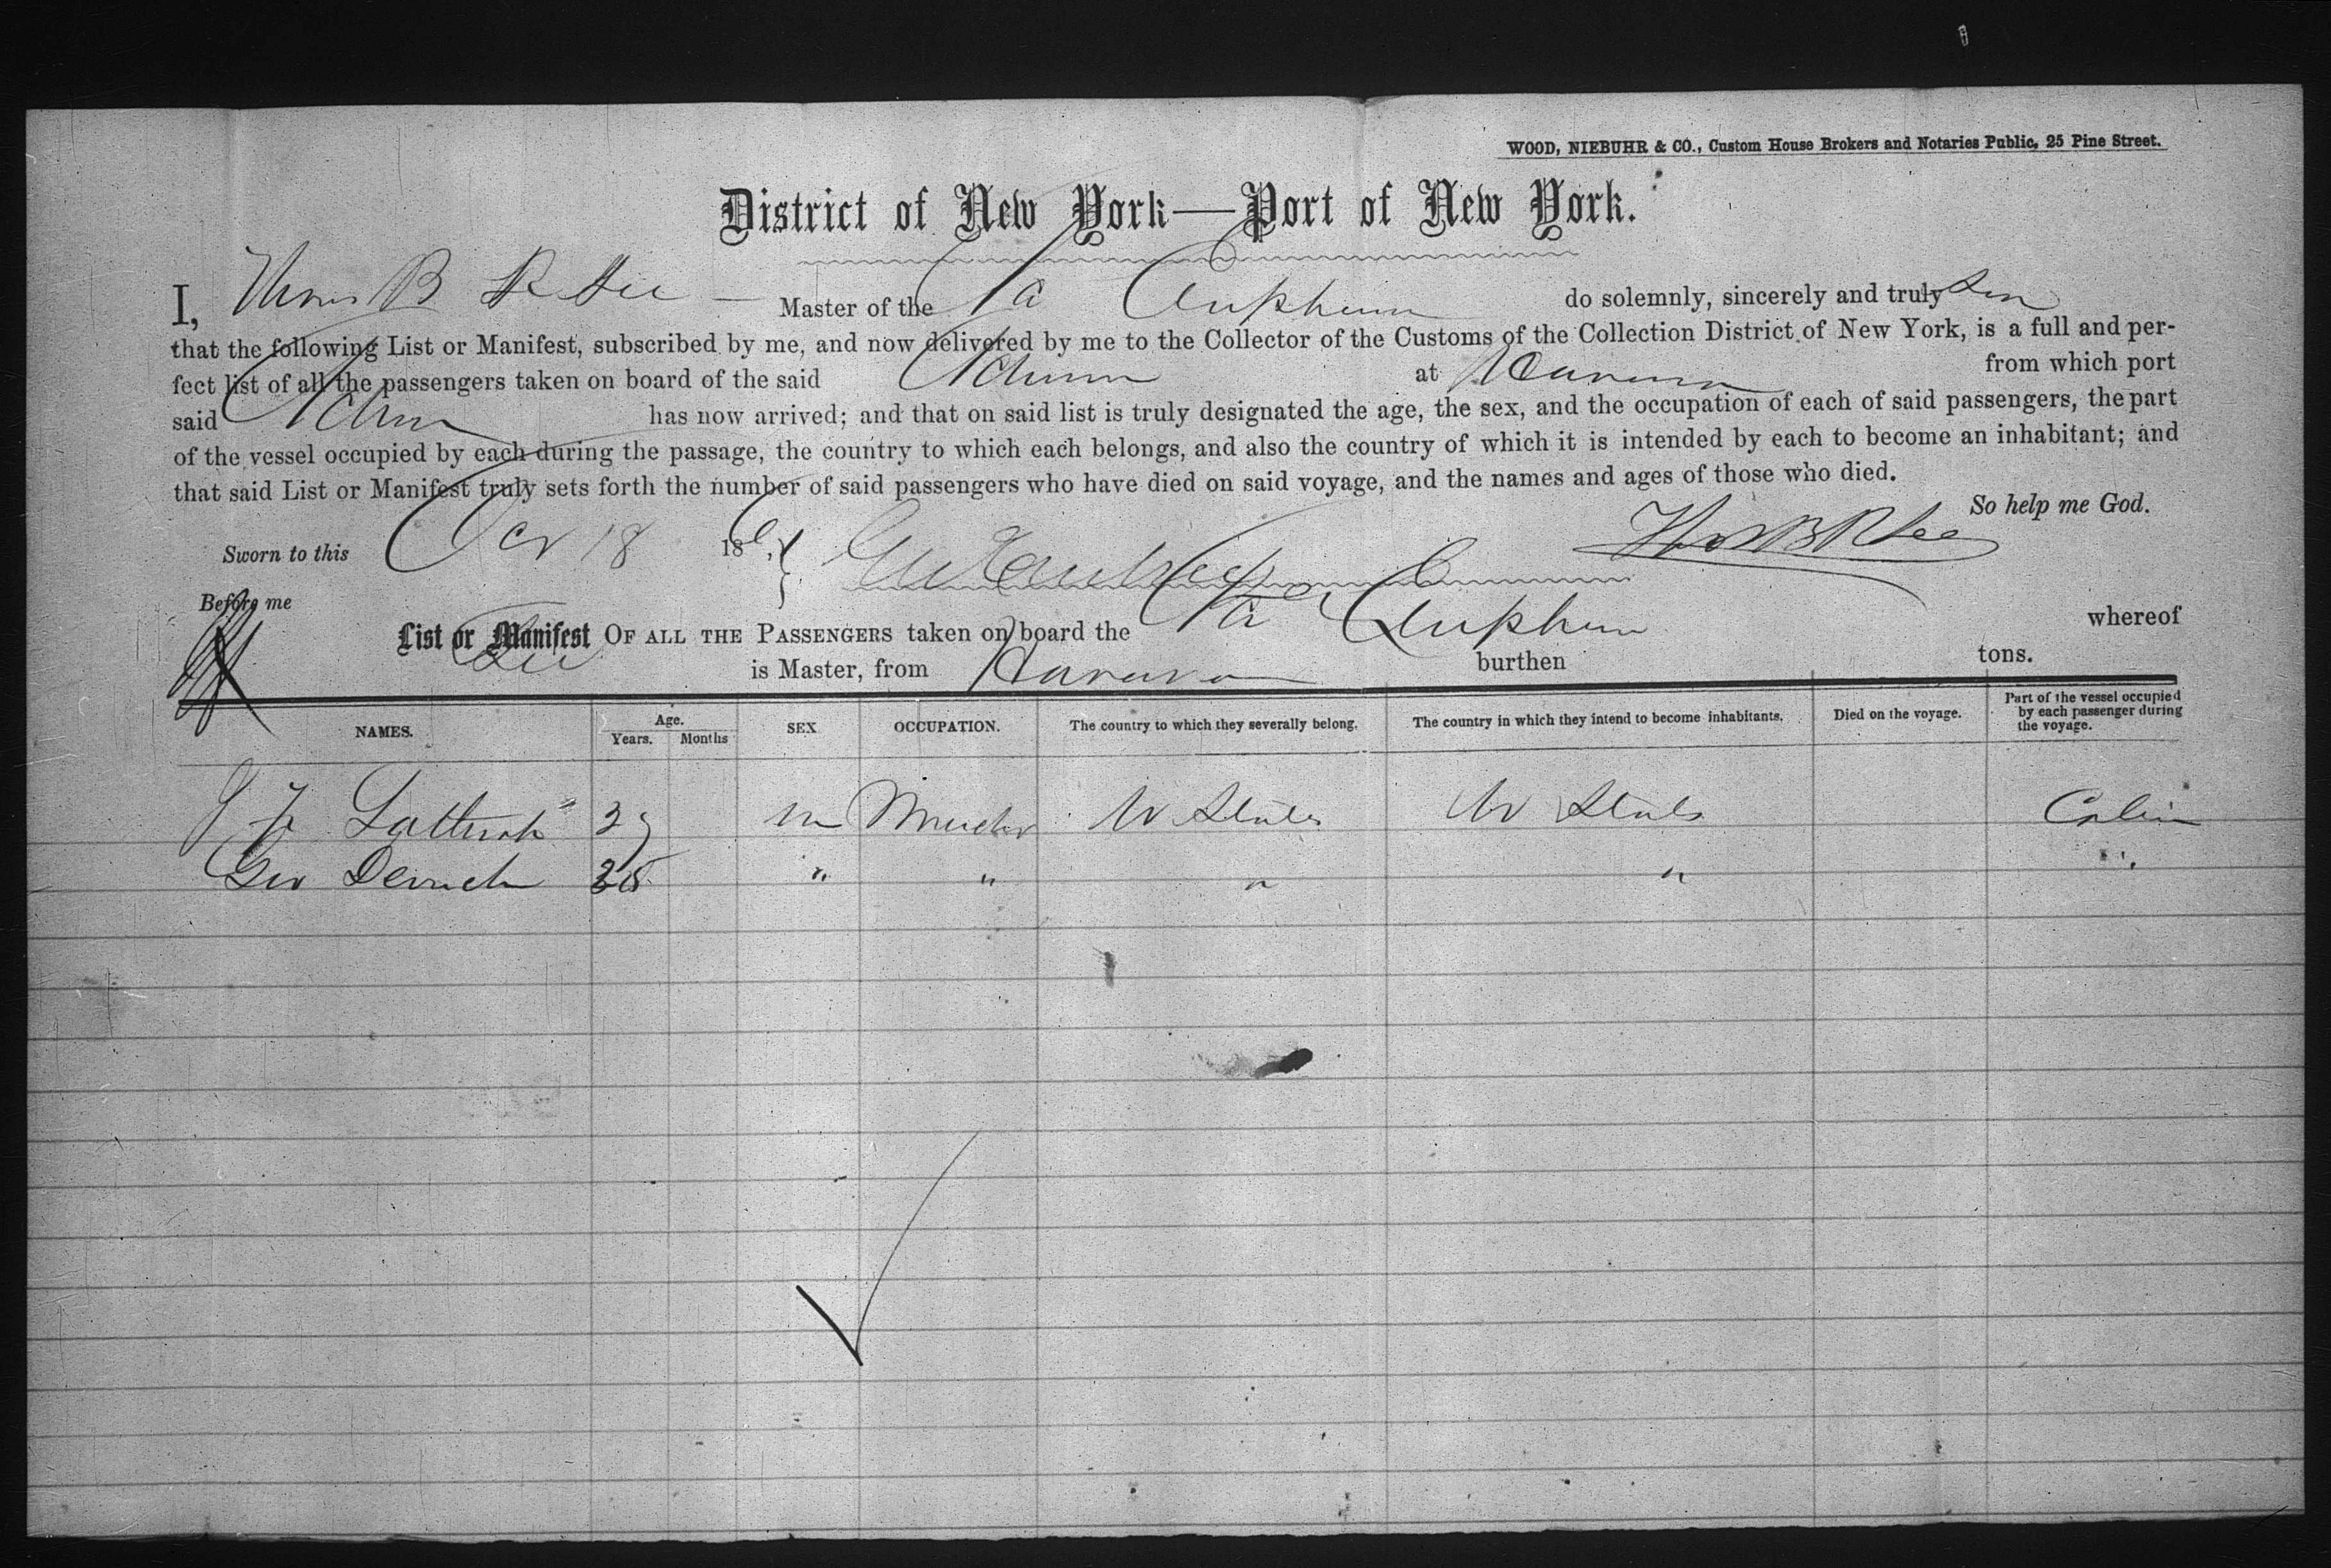 WOOD, NIEBUHR & CO., Custom House Brokers and Notaries Public, 25 Pine Street.
District of New York—Port of New York.
I, B Master of the do solemnly, sincerely and truly
that the following List or Manifest, subscribed by me, and now delivered by me to the Collector of the Customs of the Collection District of New York, is a full and per-
fect list of all the passengers taken on board of the said at Havana from which port
said has now arrived; and that on said list is truly designated the age, the sex, and the occupation of each of said passengers, the part
of the vessel occupied by each during the passage, the country to which each belongs, and also the country of which it is intended by each to become an inhabitant; and
that said List or Manifest truly sets forth the number of said passengers who have died on said voyage, and the names and ages of those who died.
So help me God.
Sworn to this 18 18
Before me
List or Manifest OF ALL THE PASSENGERS taken on board the whereof
is Master, from Havana burthen tons.
NAMES. Age. Years. Months SEX OCCUPATION. The country to which they severally belong. The country in which they intend to become inhabitants. Died on the voyage. Part of the vessel occupied by each passenger during the voyage.
m U States U States Cabin
Geo " " " " "